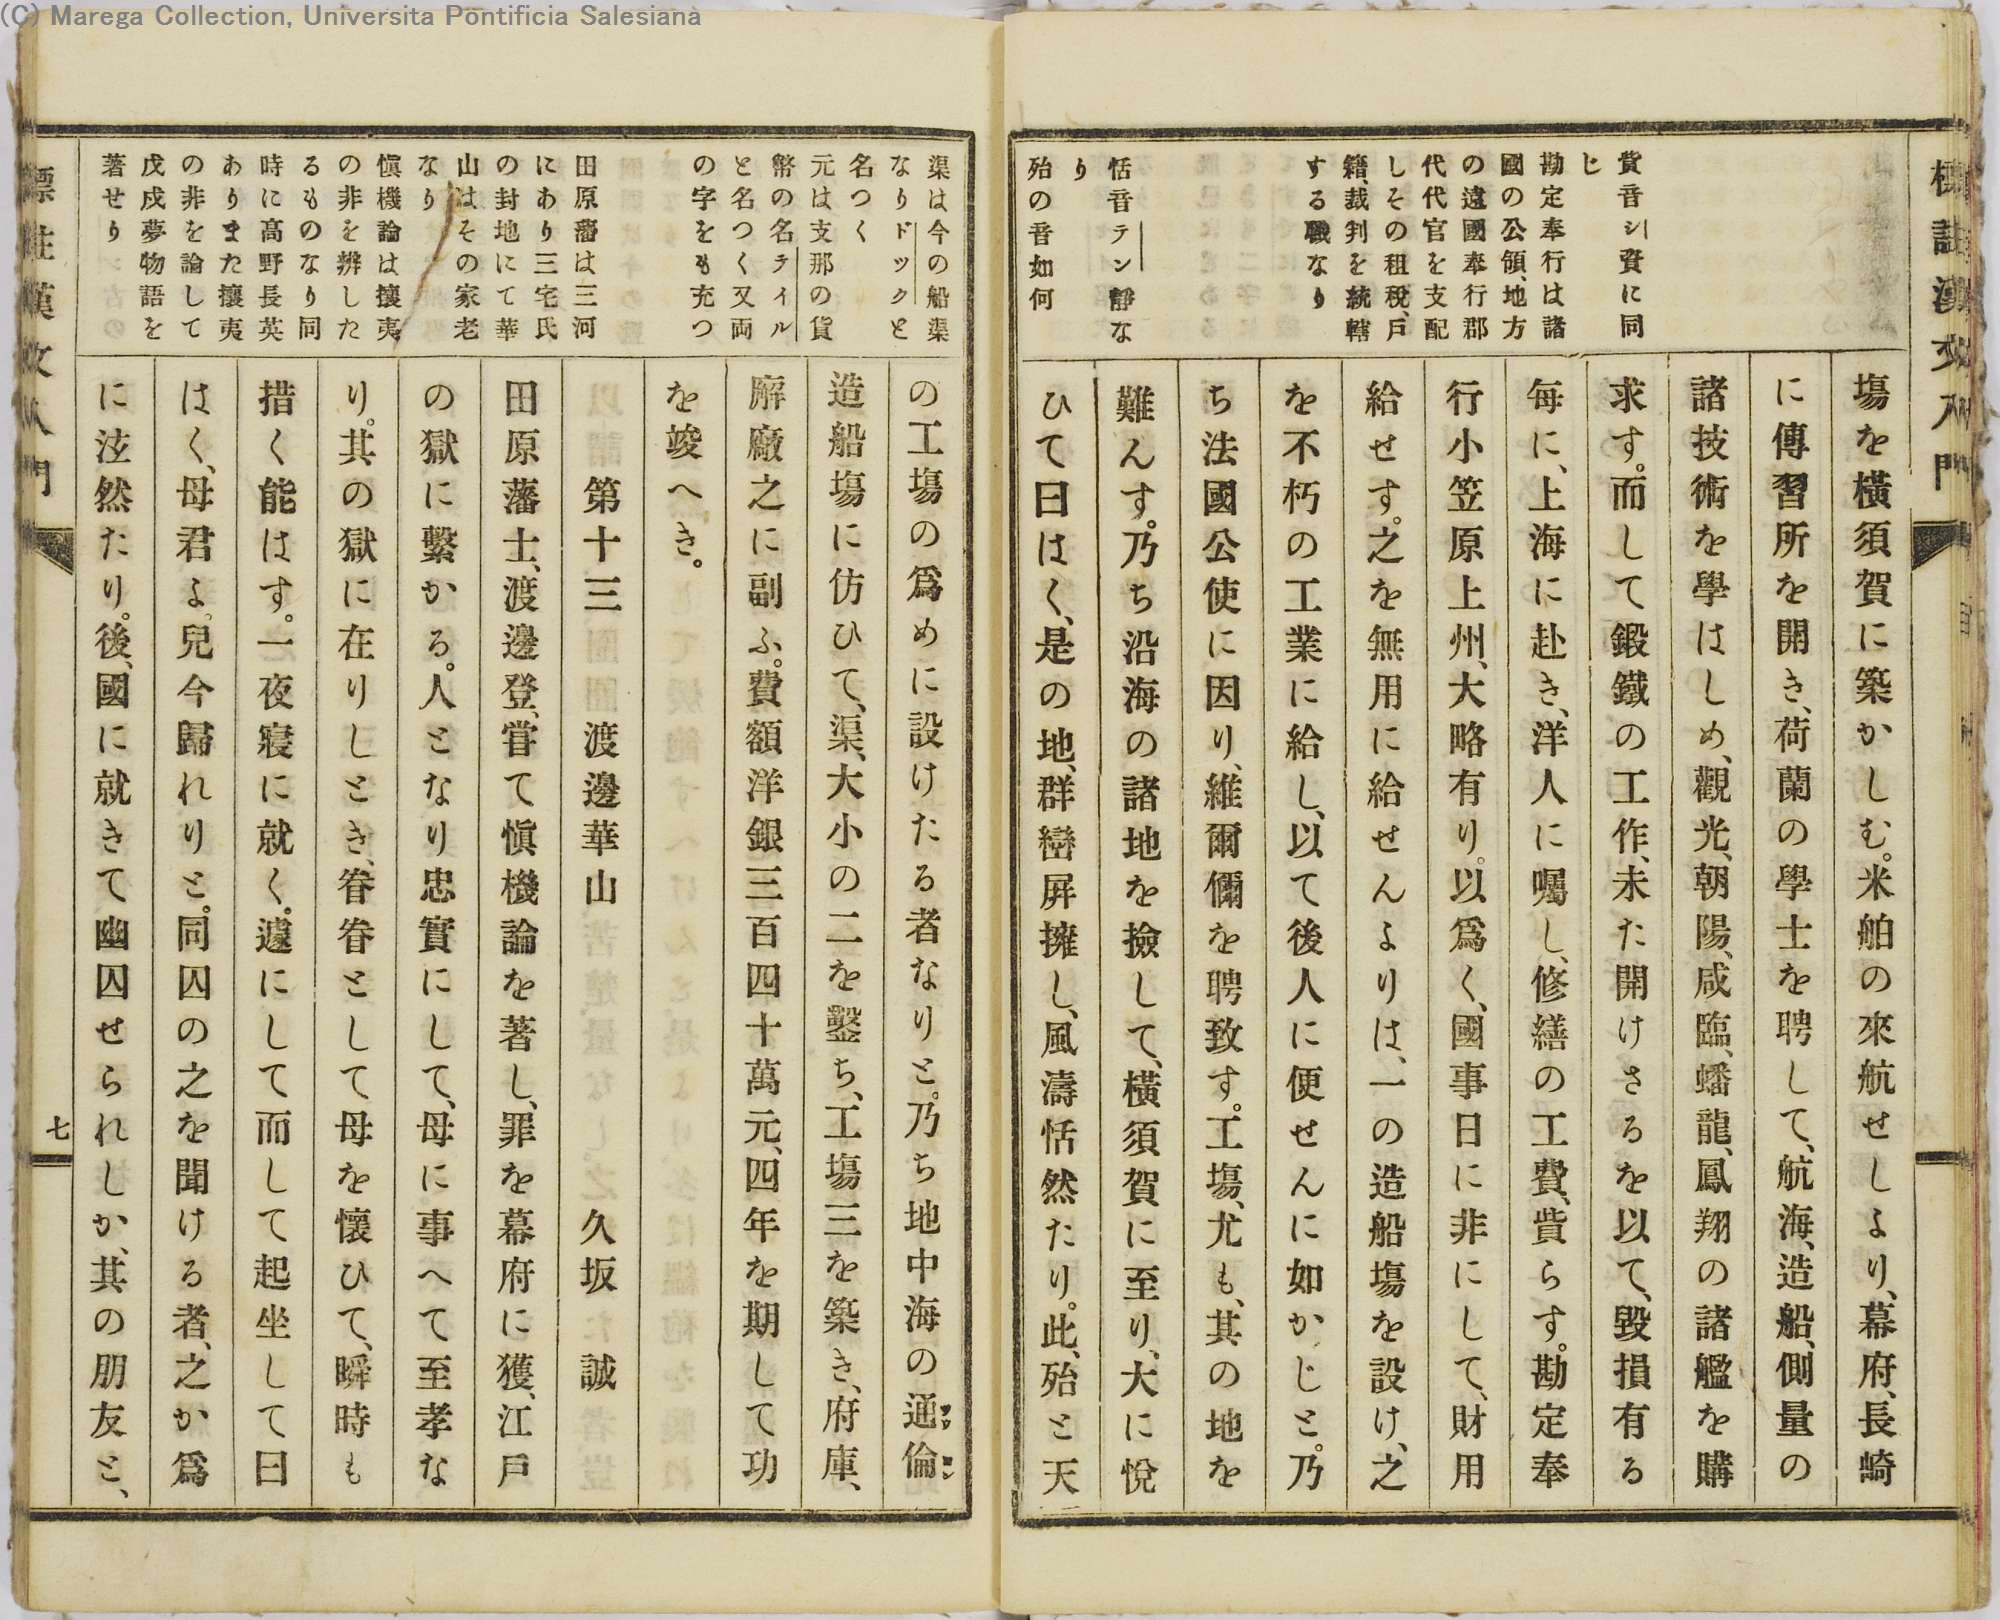 (C) Marega Collection, Universita Pontificia Salesiana
標註漢文入門
貲音シ資に同
じ
勘定奉行は諸
國の公領、地方
の遠國奉行郡
代代官を支配
しその租税、戸
籍、裁判を統轄
する職なり
恬音テン靜な
り
殆の音如何
塲を横須賀に築かしむ。米舶の來航せしより、幕府、長崎
に傳習所を開き、荷蘭の學士を聘して、航海、造船、側量の
諸技術を學はしめ、觀光、朝陽、咸臨、蟠龍、鳳翔の諸艦を購
求す。而して鍛鐵の工作、未た開けさるを以て、毀損有る
毎に、上海に赴き、洋人に囑し、修繕の工費、貲らす。勘定奉
行小笠原上州、大略有り。以爲く、國事日に非にして、財用
給せす。之を無用に給せんよりは、一の造船塲を設け、之
を不朽の工業に給し、以て後人に便せんに如かじと。乃
ち法國公使に因り、維爾儞を聘致す。工塲、尤も、其の地を
難んす。乃ち沿海の諸地を撿して、横須賀に至り、大に悅
ひて曰はく、是の地、群巒屏擁し、風濤恬然たり。此、殆と天
渠は今の船渠
なりドックと
名つく
元は支那の貨
幣の名テイル
と名つく又両
の字をも充つ
田原藩は三河
にあり三宅氏
の封地にて華
山はその家老
なり
愼機論は攘夷
の非を辨した
るものなり同
時に高野長英
ありまた攘夷
の非を論して
戊戌夢物語を
著せり
の工塲の爲めに設けたる者なりと。乃ち地中海の通倫
造船塲に仿ひて、渠、大小の二を鑿ち、工塲三を築き、府庫、
廨廠之に副ふ。費額洋銀三百四十萬元、四年を期して功
を竣へき。
第十三　渡邊華山　久坂　誠
田原藩士、渡邊登、甞て愼機論を著し、罪を幕府に獲、江戸
の獄に繫かる。人となり忠實にして、母に事へて至孝な
り。其の獄に在りしとき、眷眷として母を懷ひて、瞬時も
措く能はす。一夜寢に就く。遽にして而して起坐して曰
はく、母君よ。兒今歸れりと。同囚の之を聞ける者、之か爲
に泫然たり。後、國に就きて幽囚せられしか、其の朋友と、
標註漢文入門
七